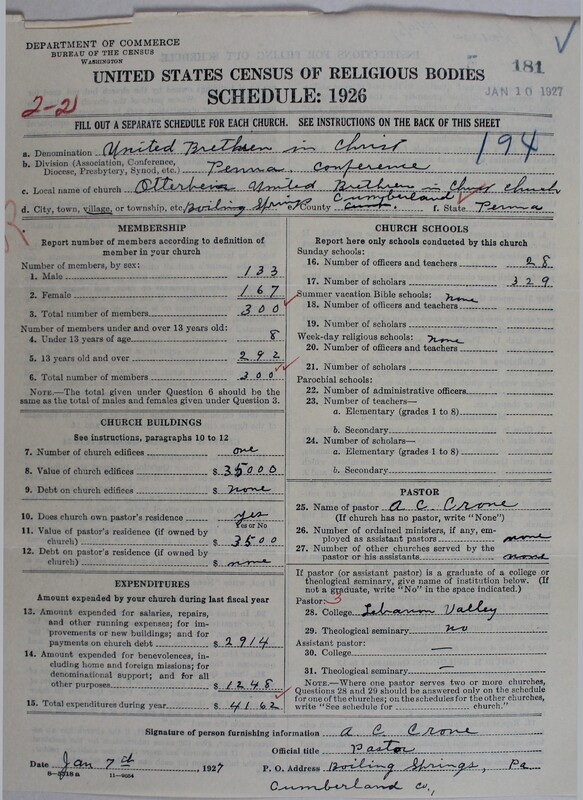 DEPARTMENT OF COMMERCE
BUREAU OF THE CENSUS
WASHINGTON
181
JAN 10 1927
UNITED STATES CENSUS OF RELIGIOUS BODIES
SCHEDULE: 1926
2-2
FILL OUT A SEPARATE SCHEDULE FOR EACH CHURCH. SEE INSTRUCTIONS ON THE BACK OF THIS SHEET
194
a. Denomination United Brethren in Christ
b. Division (Association, Conference, Diocese, Presbytery, Synod, etc.) Penna. conference
c. Local name of church Otterbein United Brethren in Christ Church
d. City, town, village, or township, etc. Boiling Springs e. County Cumberland f. State Penna
MEMBERSHIP
Report number of members according to definition of
member in your church
Number of members, by sex:
1. Male 133
2. Female 167
3. Total number of members 300
Number of members under and over 13 years old:
4. Under 13 years of age 8
5. 13 years old and over 292
6. Total number of members 300
NOTE.—The total given under Question 6 should be
the same as the total of males and females given under Question 3.
CHURCH BUILDINGS
See instructions, paragraphs 10 to 12
7. Number of church edifices one
8. Value of church edifices $ 35000
9. Debt on church edifices $ none
10. Does church own pastor's residence yes
Yes or No
11. Value of pastor's residence (if owned by
church) $ 3500
12. Debt on pastor's residence (if owned by
church) $ none
EXPENDITURES
Amount expended by your church during last fiscal year
13. Amount expended for salaries, repairs,
and other running expenses; for im-
provements or new buildings; and for
payments on church debt $ 2914
14. Amount expended for benevolences, in-
cluding home and foreign missions; for
denominational support; and for all
other purposes $ 1248
15. Total expenditures during year $ 4162
CHURCH SCHOOLS
Report here only schools conducted by this church
Sunday schools:
16. Number of officers and teachers 28
17. Number of scholars 329
Summer vacation Bible schools: none
18. Number of officers and teachers
19. Number of scholars
Week-day religious schools: none
20. Number of officers and teachers
21. Number of scholars
Parochial schools:
22. Number of administrative officers
23. Number of teachers—
a. Elementary (grades 1 to 8)
b. Secondary
24. Number of scholars—
a. Elementary (grades 1 to 8)
b. Secondary
PASTOR
25. Name of pastor A. C. Crone
(If church has no pastor, write "None")
26. Number of ordained ministers, if any, em-
ployed as assistant pastors none
27. Number of other churches served by the
pastor or his assistants none
If pastor (or assistant pastor) is a graduate of a college or
theological seminary, give name of institution below. (If
not a graduate, write "No" in the space indicated.)
Pastor: 3
28. College Lebanon Valley
29. Theological seminary no
Assistant pastor:
30. College —
31. Theological seminary —
NOTE.—Where one pastor serves two or more churches,
Questions 28 and 29 should be answered only on the schedule
for one of the churches; on the schedules for the other churches,
write "See schedule for church."
Signature of person furnishing information A. C. Crone
Official title Pastor
Date Jan 7th 1927 P. O. Address Boiling Springs, Pa
8-5018a 11-9664
Cumberland Co.,